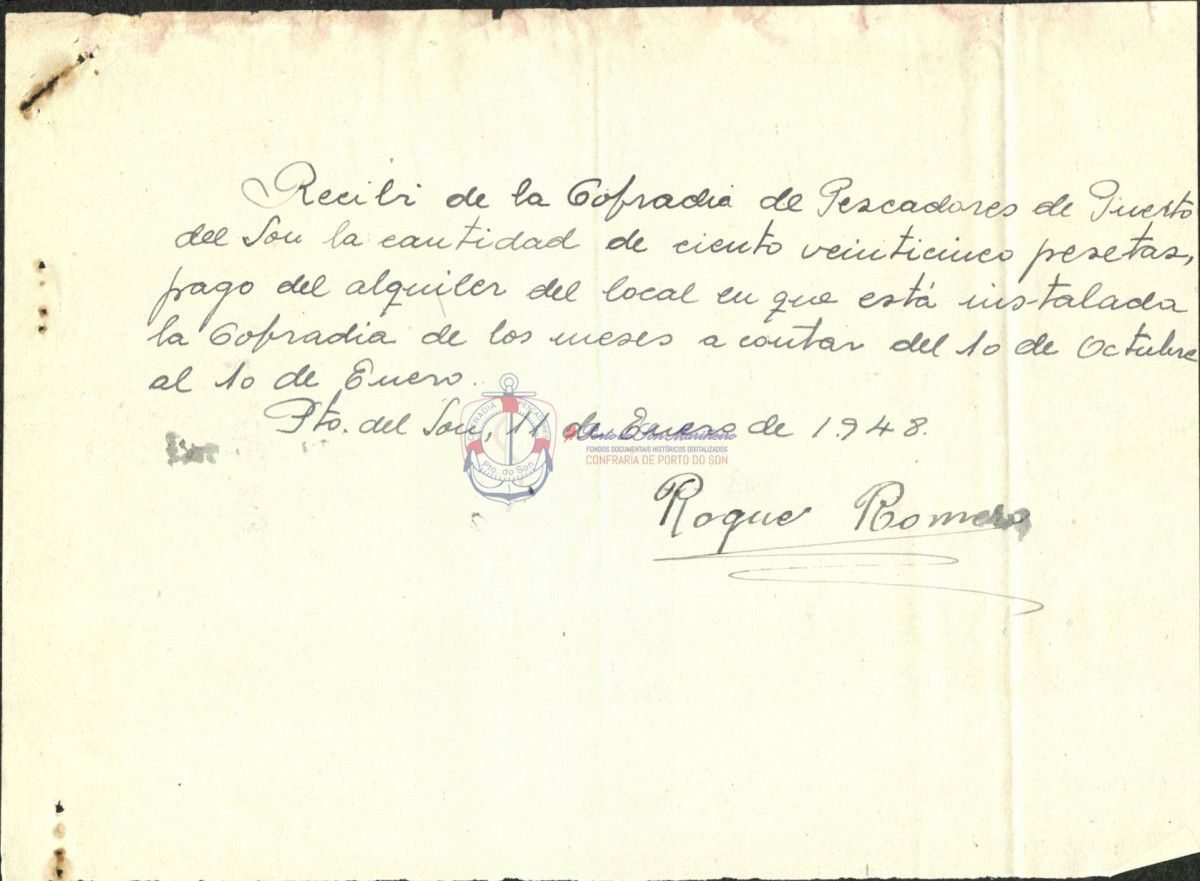 Recibí de la Cofradia de Pescadores de Puerto
del Son la cantidad de ciento veinticinco pesetas,
pago del alquiler del local en que está instalada
la Cofradia de los meses a contar del 10 de Octubre
al 10 de Enero.
Pto. del Son, 11 de Enero de 1.948.
Roque Romero
CONFRADIA PESCADORES
Pto. do Son
Porto do Son Mariñeiro
FONDOS DOCUMENTAIS HISTÓRICOS DIXITALIZADOS
CONFRARÍA DE PORTO DO SON